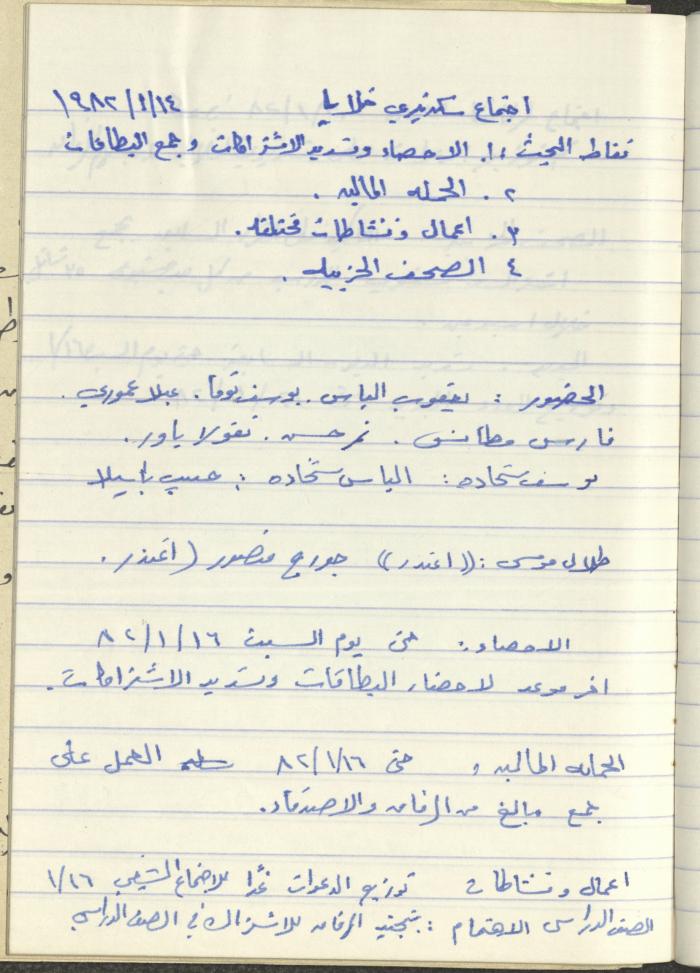 اجتماع سكرتيري خلايا ١٩٨٢/١/١٤
نقاط البحث: ١. الاحصاء وتسديد الاشتراكات وجمع البطاقات
٢. الحمله الماليه.
٣. اعمال ونشاطات مختلفه.
٤ الصحف الحزبيه.
الحضور: يعقوب الياس. يوسف توما. عبلا عموري.
فارس مطانس. نمر حسن. نقولا ياور.
يوسف شحاده: الياس شحاده: حبيب باسيلا
طلال موسى: ((اعتذر)) جورج منصور (اعتذر.
الاحصاء: حتى يوم السبت ٨٢/١/١٦
اخر موعد لاحضار البطاقات وتسديد الاشتراكات.
الحمله الماليه: حتى ٨٢/١/١٦ العمل على
جمع مبالغ من الرفاق والاصدقاء.
اعمال ونشاطات توزيع الدعوات غدًا للاجتماع الشعبي ١/١٦
الصف الدراسي الاهتمام: بتجنيد الرفاق للاشتراك في الصف الدراسي